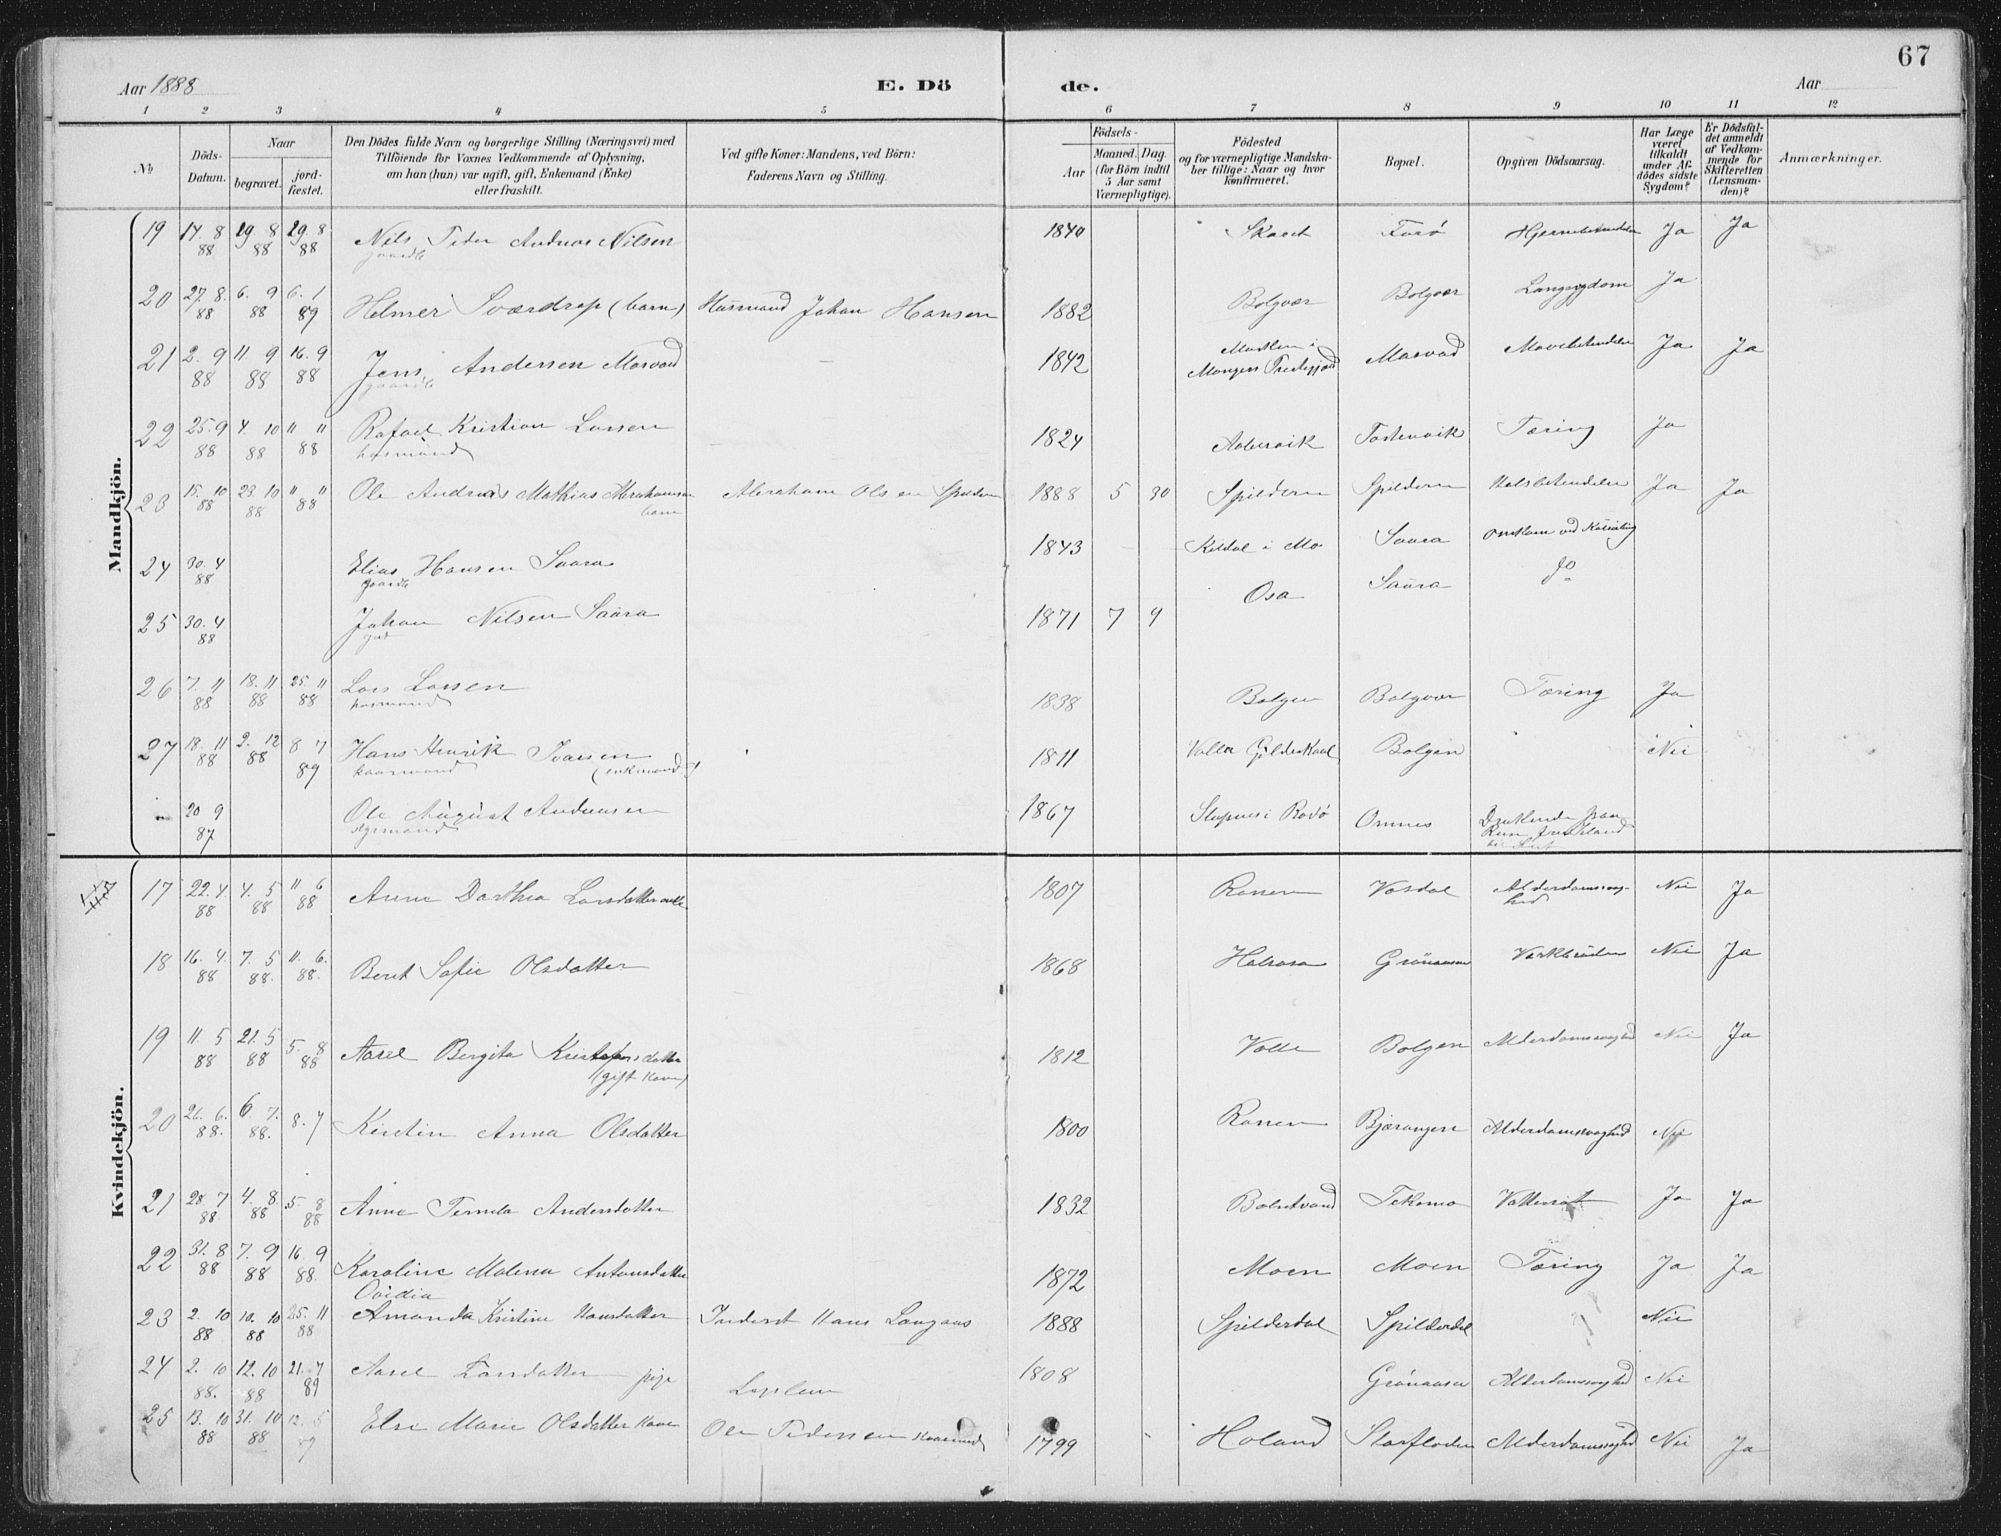 67
Aar 1888 E. Dö de. Aar
1 2 3 4 5 6 7 8 9 10 11 12
No
Döds-Datum.
Naar
begravet.
jord-fæstet.
Den Dödes fulde Navn og borgerlige Stilling (Næringsvei) med
Tilföiende for Voxnes Vedkommende af Oplysning,
om han (hun) var ugift, gift, Enkemand (Enke)
eller fraskilt.
Ved gifte Koner: Mandens, ved Börn:
Faderens Navn og Stilling.
Födsels-
Aar
Maaned. Dag.
(for Börn indtil
5 Aar samt
Værnepligtige).
Födested
og for værnepligtige Mandska-
ber tillige: Naar og hvor
konfirmeret.
Bopæl.
Opgiven Dödsaarsag.
Har Læge
været
tilkaldt
under Af-
dödes sidste
Sygdom?
Er Dödsfal-
det anmeldt
af Vedkom-
mende for
Skifteretten
(Lensman-
den)?
Anmærkninger.
Mandkjön.
19 17. 8 88 29. 8 88 29. 8 88 Nils Peder Andreas Nilsen 1840 Forö Ja Ja
gaardb
20 27. 8. 88 6. 9 88 6. 1 89 Helmer Sværdrop (barn) Husmand Johan Hansen 1882 Bolgvær Bolgvær Langsygdom Ja
21 2. 9 88 11. 9 88 16. 9 88 Jens Andersen Mosvold 1842 Ja Ja
gaardb
22 25. 9 88 4. 10 88 " " 88 Rafael Kristian Larsen 1824 Tæring Ja
husmand
23 15. 10 88 23. 10 88 " " 88 Ole Andreas Mathias Abrahamsen Abraham Olsen Spildern 1888 5 30 Spildern Spildern Halsbetendelse Ja Ja
barn
24 30. 4 88 Elias Hansen Saura 1843 Kildal i Mo Saura Omkom ved Kulseiling
gaardb
25 30. 4 88 Johan Nilsen Saura 1871 7 9 Osa Saura do
26 7. 11 88 18. 11 88 25. 11 88 Lars Larsen 1838 Bolgen Bolgvær Tæring Ja
husmand
27 18. 11 88 2. 12 88 8 7 89 Hans Henrik Ivarsen 1811 Valla Gildeskaal Bolgen Nei
kaarmand (enkemand)
20 9 87 Ole August Andreasen 1867 Rödö Omnes
Kvindekjön.
17 22. 4. 88 4. 5 88 11 6 88 Anne Dorthea Larsdatter 1807 Ranen Vasdal Alderdomssvag-hed Nei Ja
18 16. 4. 88 7. 5 88. 11. 6. 88. Berit Sofie Olsdatter 1868 Grönaasen Nei Ja
19 11. 5 88 21. 5 88 5. 8 88 Aasel Bergita Kristofersdatter 1812 Valle Bolgen Alderdomssvaghed Nei Ja
(gift kone)
20 26. 6. 88. 6 7. 88. 8. 7 Kirstin Anna Olsdatter 1800 Ranen Bjærangen Alderdomssvaghed Nei
21 28. 7 88 4. 8. 88 5. 8 88 Anne Pernela Andersdatter 1832 Telsmo Vattersot Ja Ja
22 31. 8 88 7. 9 88 16. 9 88. Karoline Malena Antonsdatter 1872 Moen Moen Tæring Ja Ja
Ovidia
23 2. 10 88 10. 10 88 25. 11 88 Amanda Kristine Hansdatter Inderst Hans Langaas 1888 Spilderdal Spilderdal Nei
24 2. 10 88. 12. 10 88 21. 7 89 Aasel Larsdatter pige 1808 Grönaasen Alderdomssvaghed Nei
25 13. 10 88 31. 10 88 12. 5 89 Else Marie Olsdatter Kone Ole Pedersen Kaarmand 1799 Holand Storfloden Alderdomssvaghed Nei Ja